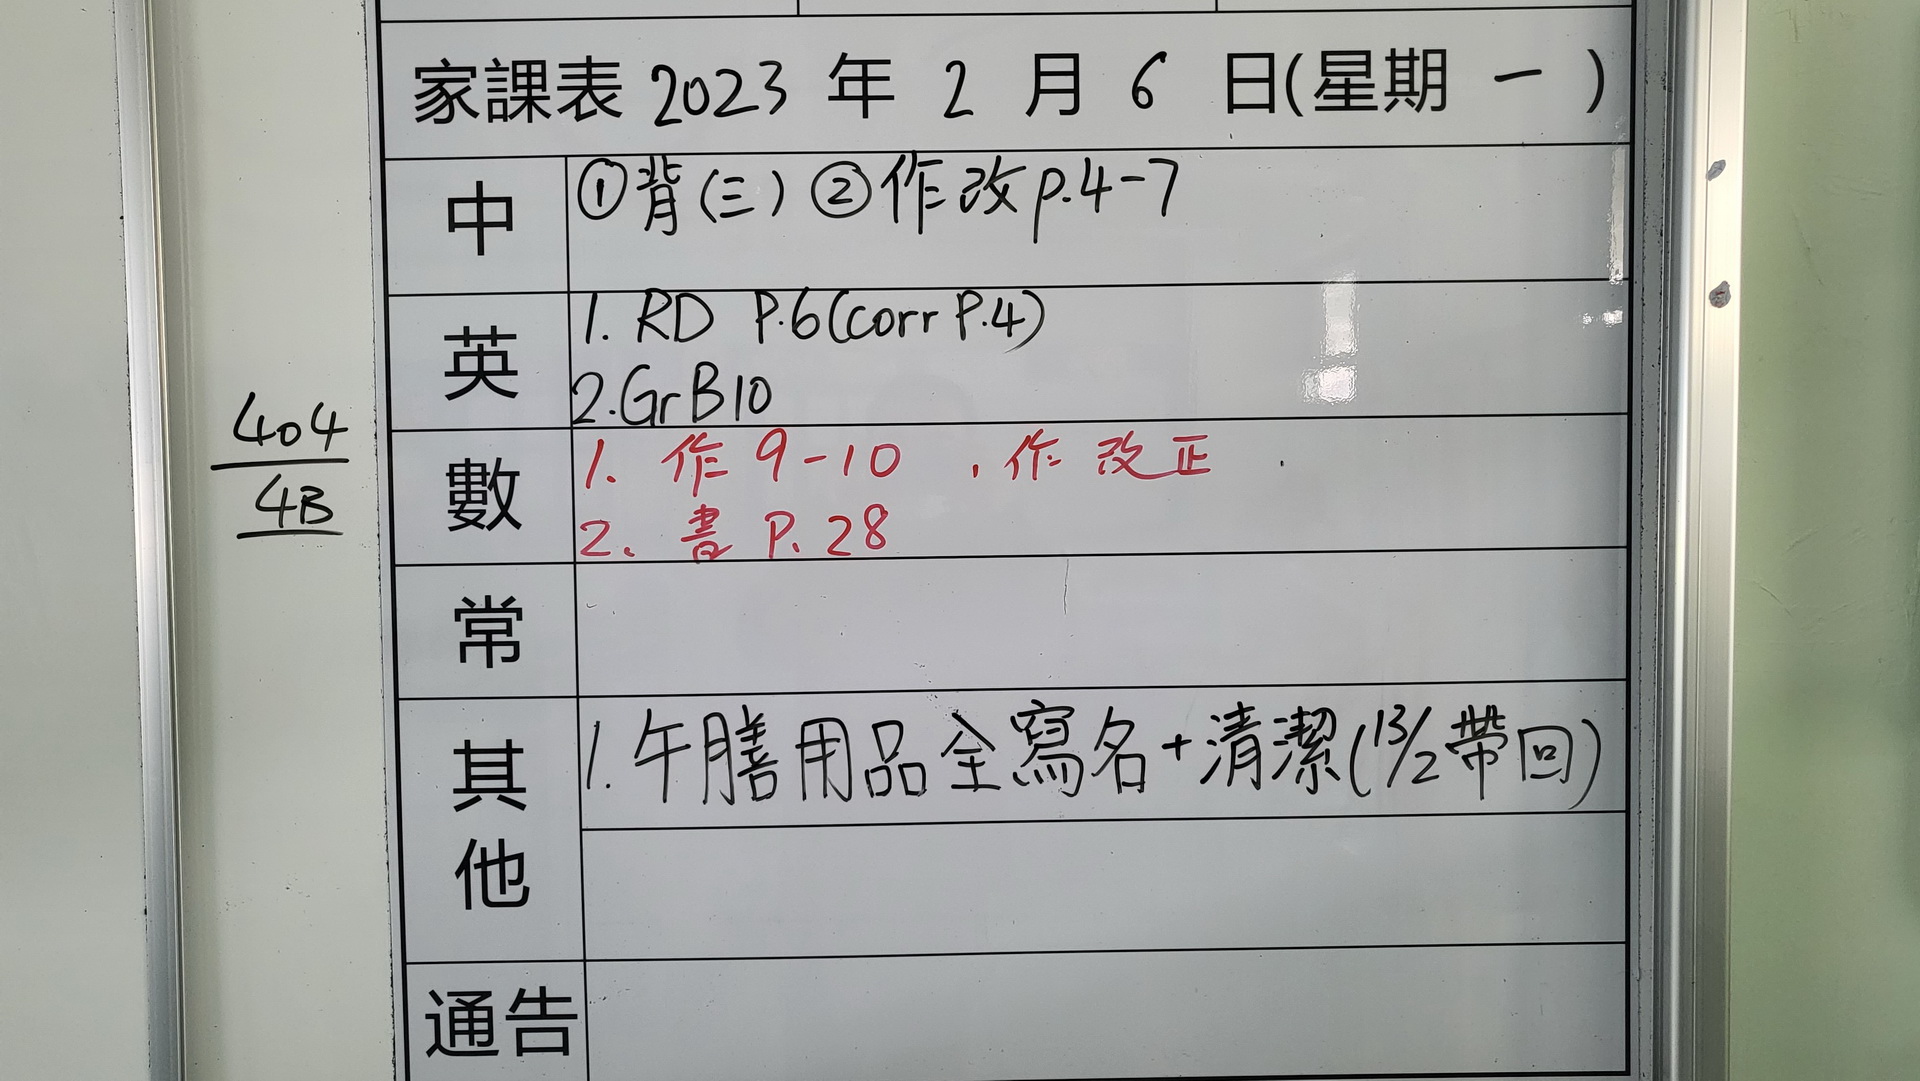 家課表 2023 年 2 月 6 日(星期 一 )
中 ①背(三) ②作改p.4-7
英 1. RD P.6(corr P.4)
2.GrB10
數 1. 作9-10 、作改正
2. 書 P.28
常
其他 1.午膳用品全寫名+清潔(13/2帶回)
通告
404
4B